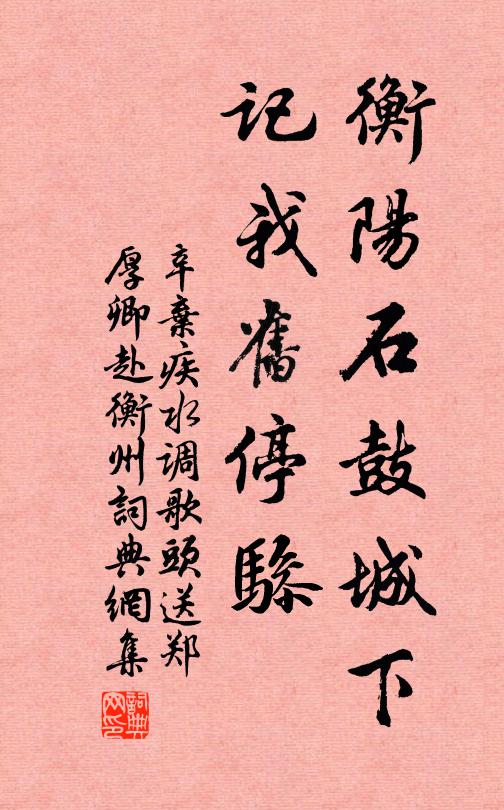 衡陽石鼓城下
記我舊停驂
辛棄疾水调歌頭送郑
厚卿赴衡州詞典網集
詞典
网印